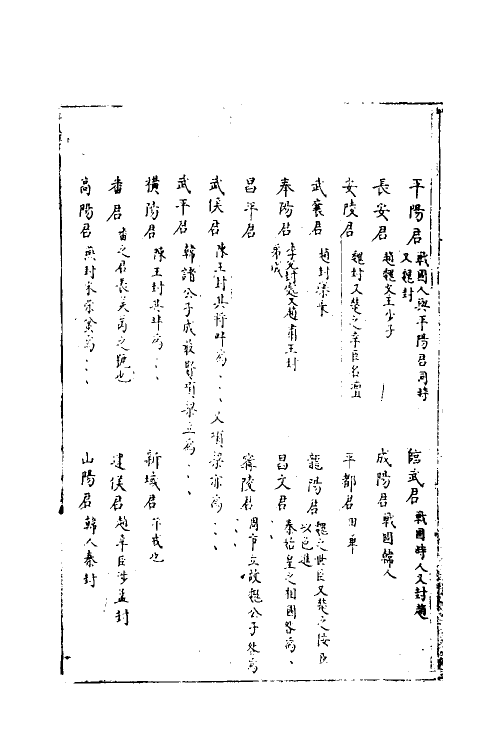 平陽君 戰國人與平陽君同時又魏封
信武君 戰國時人又封趙
長安君 趙魏文王少子
成陽君 戰國韓人
安陵君 魏封又楚之幸臣名壇
平都君 田單
武襄君 趙封樂乘
龍陽君 魏之幸臣又楚之佞臣以色進
奉陽君 李兌封號又趙肅王封弟成
昌文君 秦始皇之相國名為、、、
昌平君
寧陵君 周市立故魏公子咎為、、、
武侯君 陳王封其將叶為、、、又項梁亦為、、、
武平君 韓諸公子成最賢項梁立為、、、
橫陽君 陳王封其叶為、、、
新城君 芉戎也
番君 番之君長吳芮之號也
建侯君 趙幸臣涉孟封
高陽君 燕封宋榮蚠為、、、
山陽君 韓人秦封